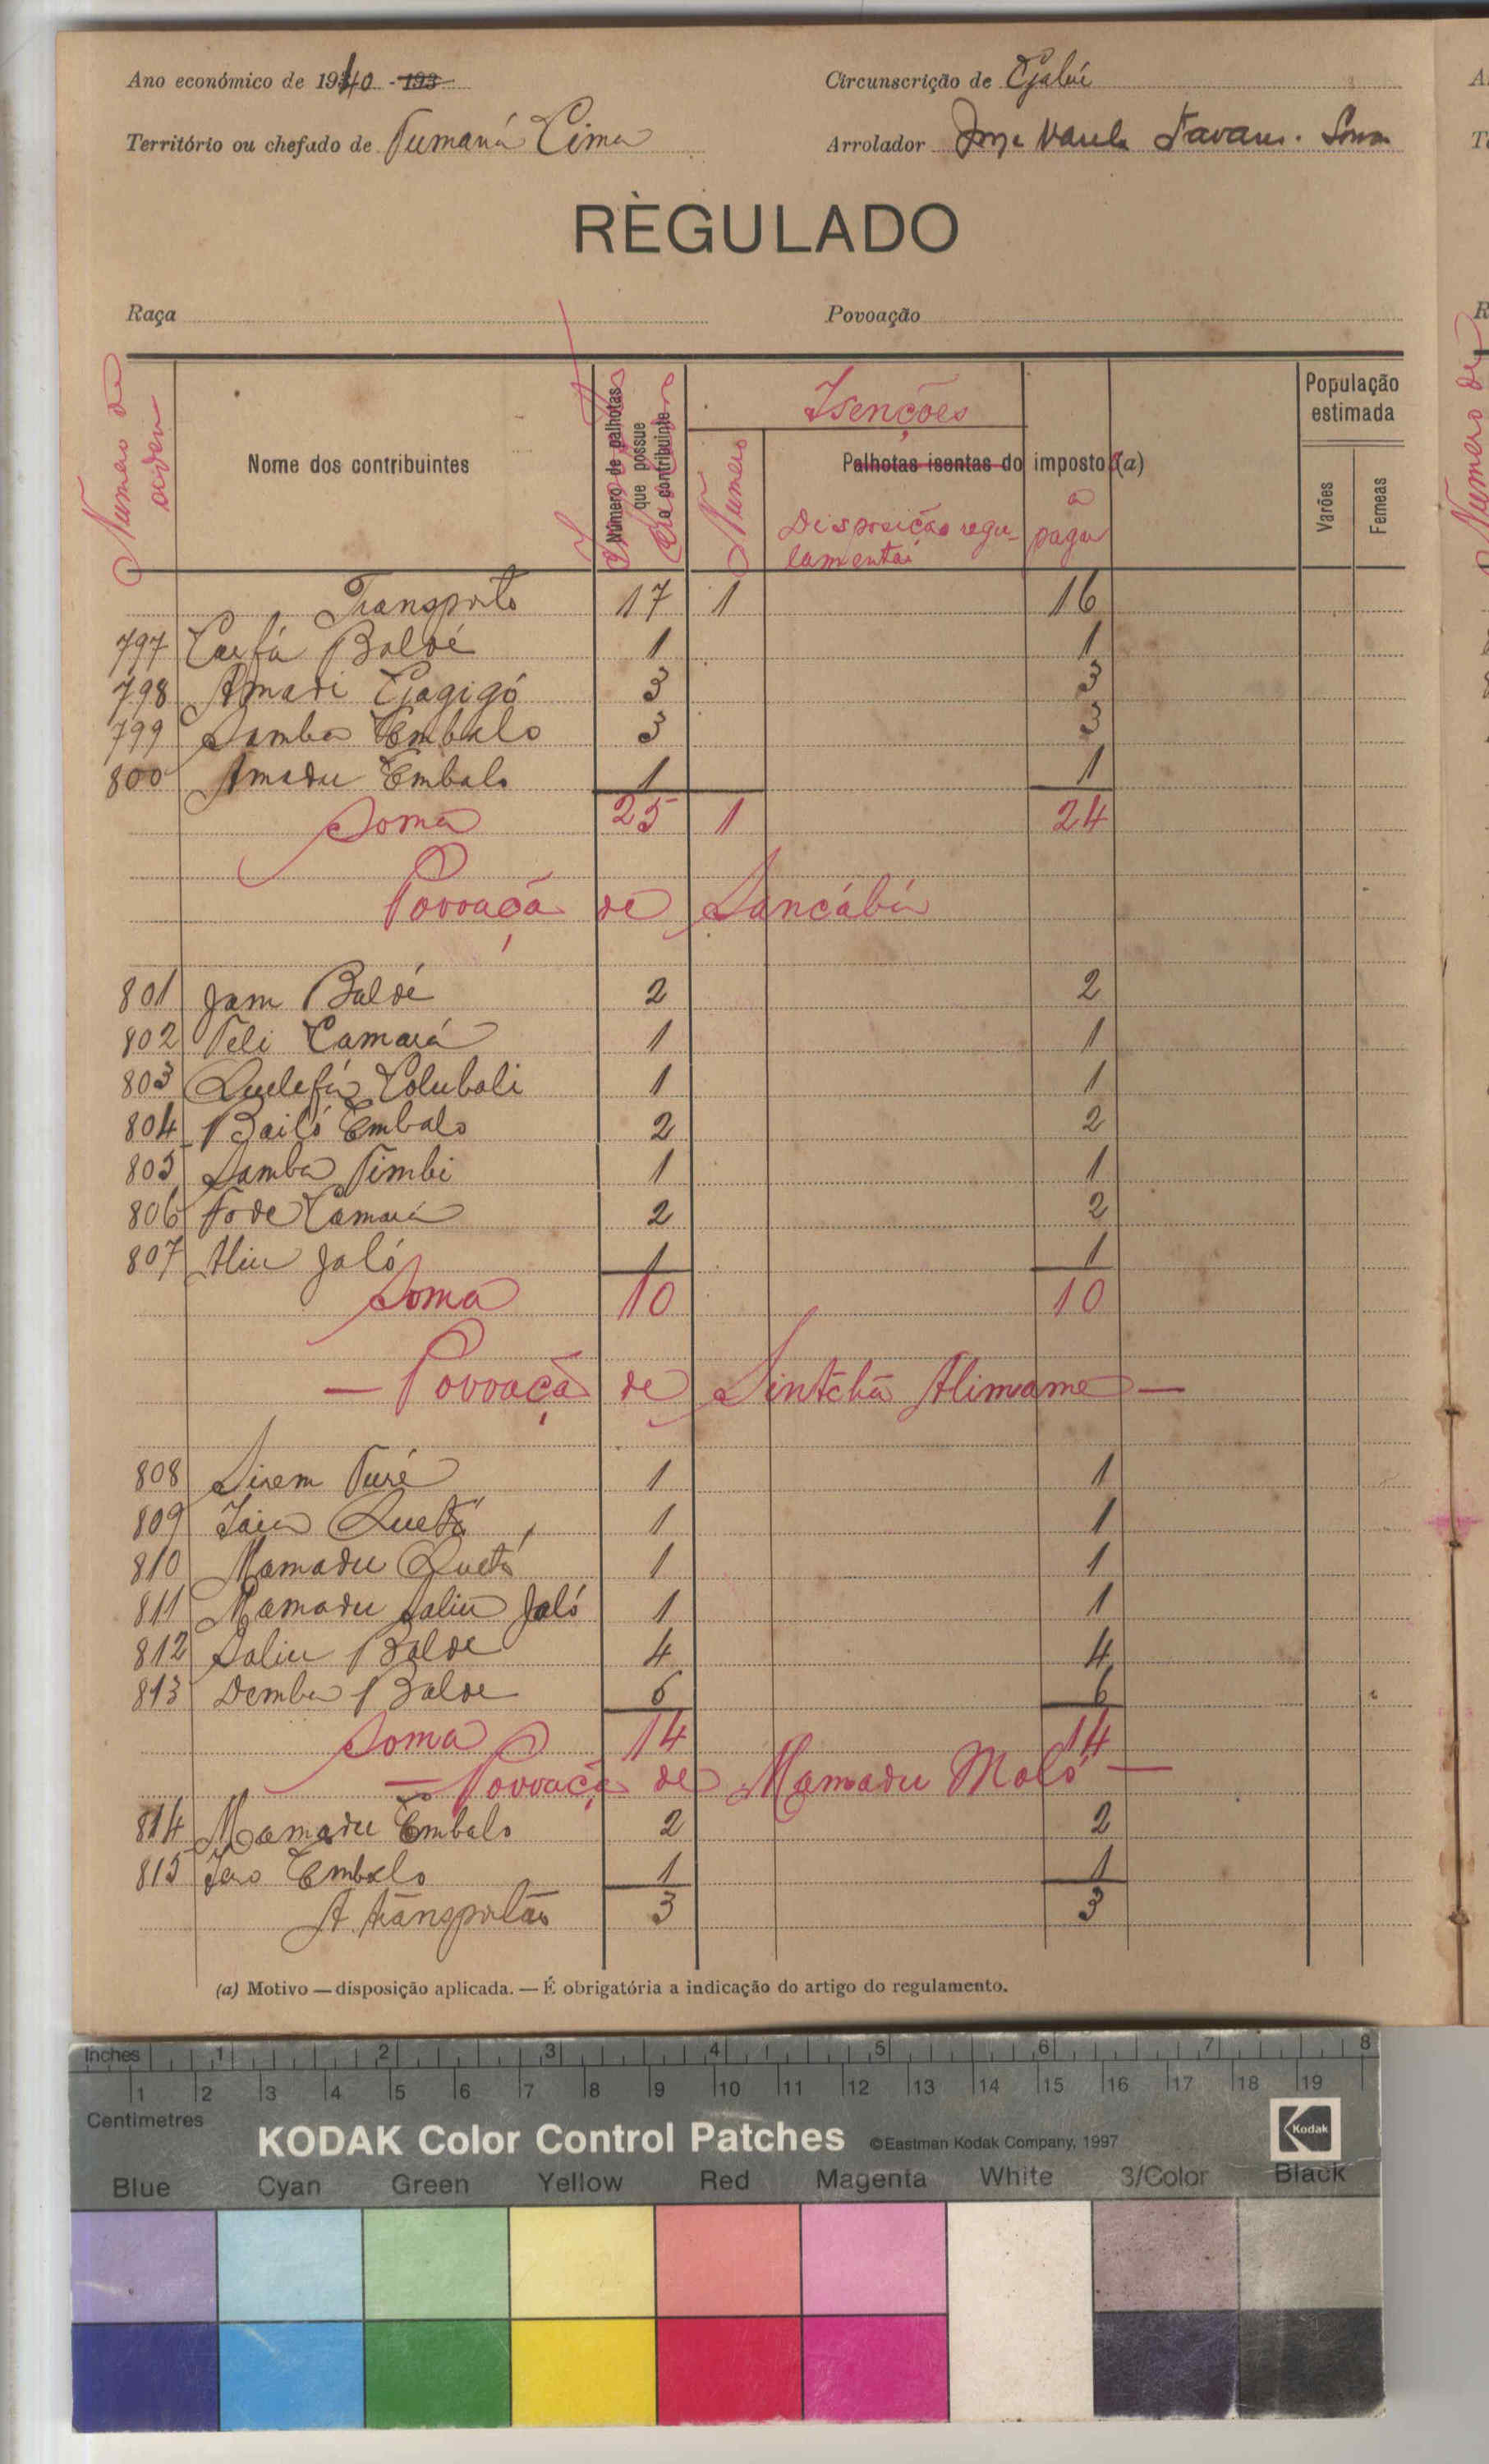 Ano económico de 1940 - 193
Circunscrição de Gabú
Território ou chefado de Tumaná Cima
Arrolador Tavares
REGULADO
Raça
Povoação
Numero de ordem
Nome dos contribuintes
Número de palhotas que possue o contribuinte
Isenções
Numero
Palhotas isentas do imposto (a)
Disposição regulamentar
a pagar
População estimada
Varões
Femeas
Transporte 17 1 16
797 Baldé 1 1
798 Amadi Gagigó 3 3
799 Samba Embalo 3 3
800 Amadu Embalo 1 1
Soma 25 1 24
Povoação de Sancábú
801 Jam Baldé 2 2
802 Teli Camará 1 1
803 Quelefá Colubali 1 1
804 Bailó Embalo 2 2
805 Samba Timbi 1 1
806 Fode Camará 2 2
807 Aliu Jaló 1 1
Soma 10 10
— Povoação de Sintchã Alimame —
808 Sirem Turé 1 1
809 Iaia Quetá 1 1
810 Mamadu Quetá 1 1
811 Mamadu Saliu Jaló 1 1
812 Saliu Balde 4 4
813 Demba Balde 6 6
Soma 14 14
— Povoação de Mamadu Moló —
814 Mamadu Embalo 2 2
815 Embalo 1 1
A transportar 3 3
(a) Motivo — disposição aplicada. — É obrigatória a indicação do artigo do regulamento.
Inches 1 2 3 4 5 6 7 8
1 2 3 4 5 6 7 8 9 10 11 12 13 14 15 16 17 18 19
Centimetres
KODAK Color Control Patches ©Eastman Kodak Company, 1997 Kodak
Blue Cyan Green Yellow Red Magenta White 3/Color Black